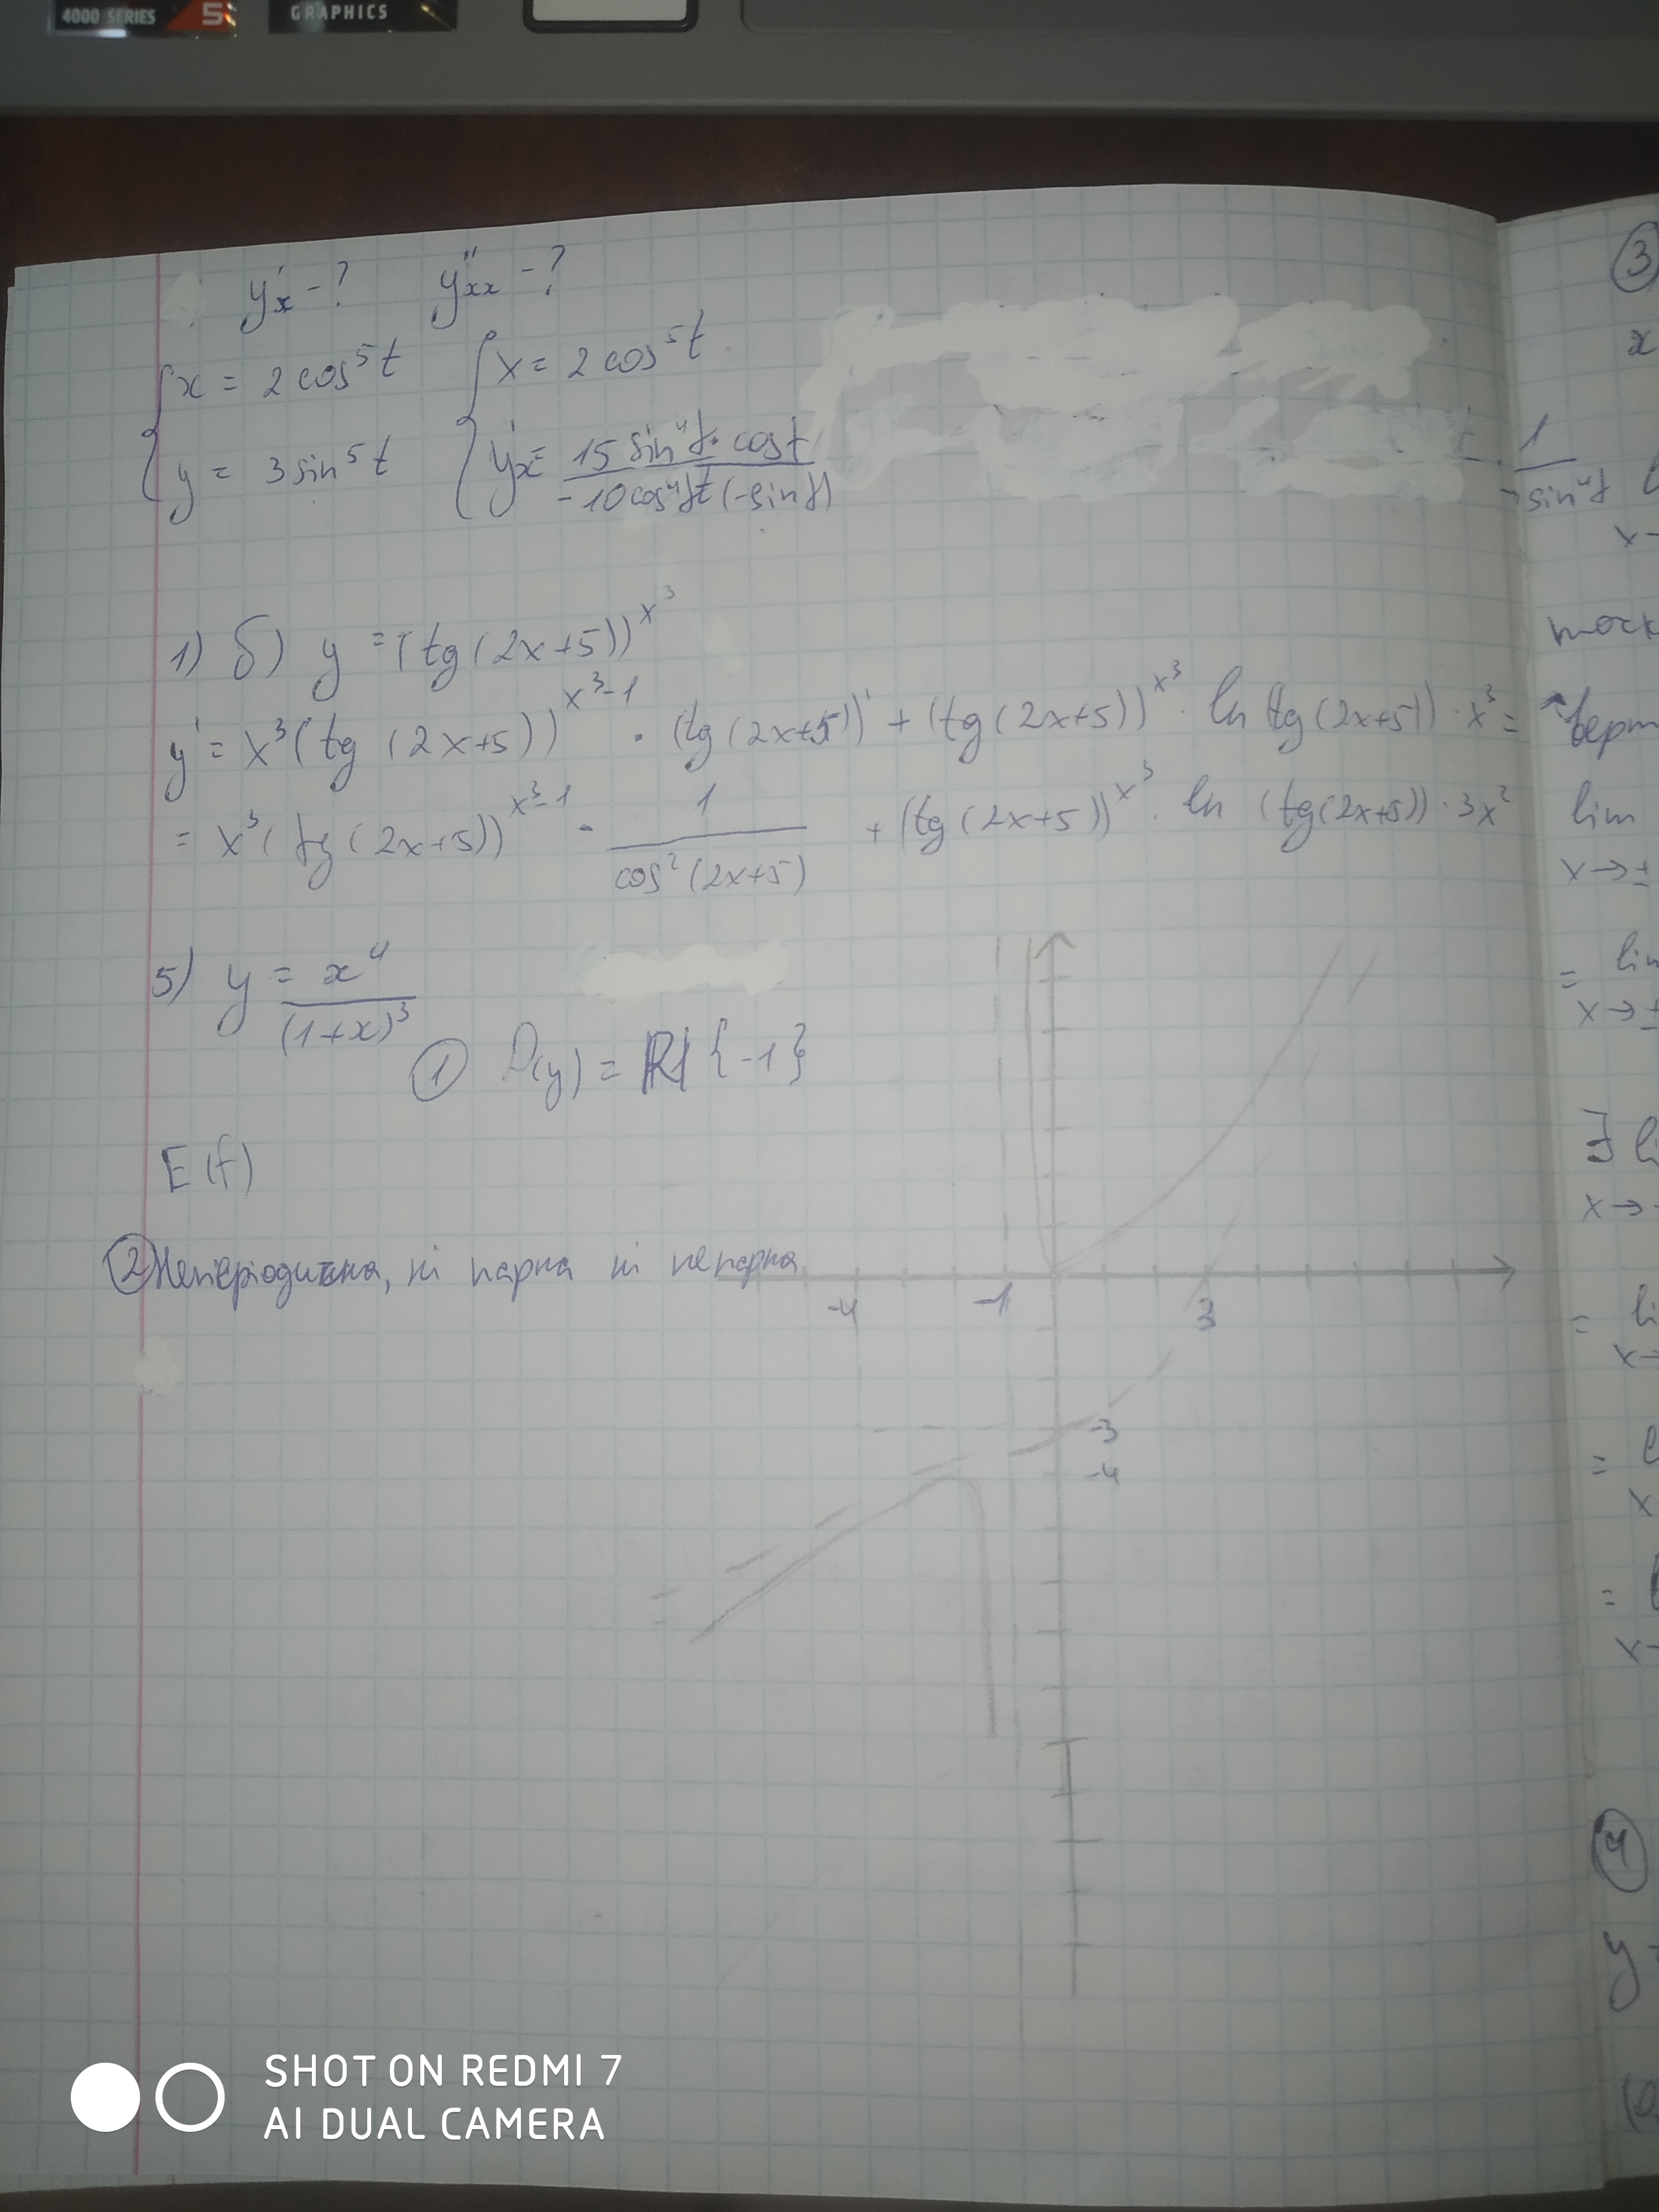 4000 SERIES 5
GRAPHICS
y'x - ? y''xx - ?
{ x = 2 cos⁵t { x = 2 cos⁵t
{ y = 3 sin⁵t { y'x = 15 sin⁴t · cos t / -10 cos⁴t (-sin t)
1 / sin⁴t
1) б) y = (tg (2x+5))^x³
y' = x³ (tg (2x+5))^x³-1 · (tg (2x+5))' + (tg (2x+5))^x³ · ln (tg (2x+5)) · x³ =
= x³ (tg (2x+5))^x³-1 · 1 / cos² (2x+5) + (tg (2x+5))^x³ · ln (tg (2x+5)) · 3x²
5) y = x⁴ / (1+x)³
① D(y) = R \ {-1}
E(f)
② Неперіодична, ні парна ні непарна
-4 -1 3
-3
-4
③
x
x→
верт
lim
x→±
= lim
x→±
∃ li
x→
= li
x→
=
x
=
x→
④
y
SHOT ON REDMI 7
AI DUAL CAMERA